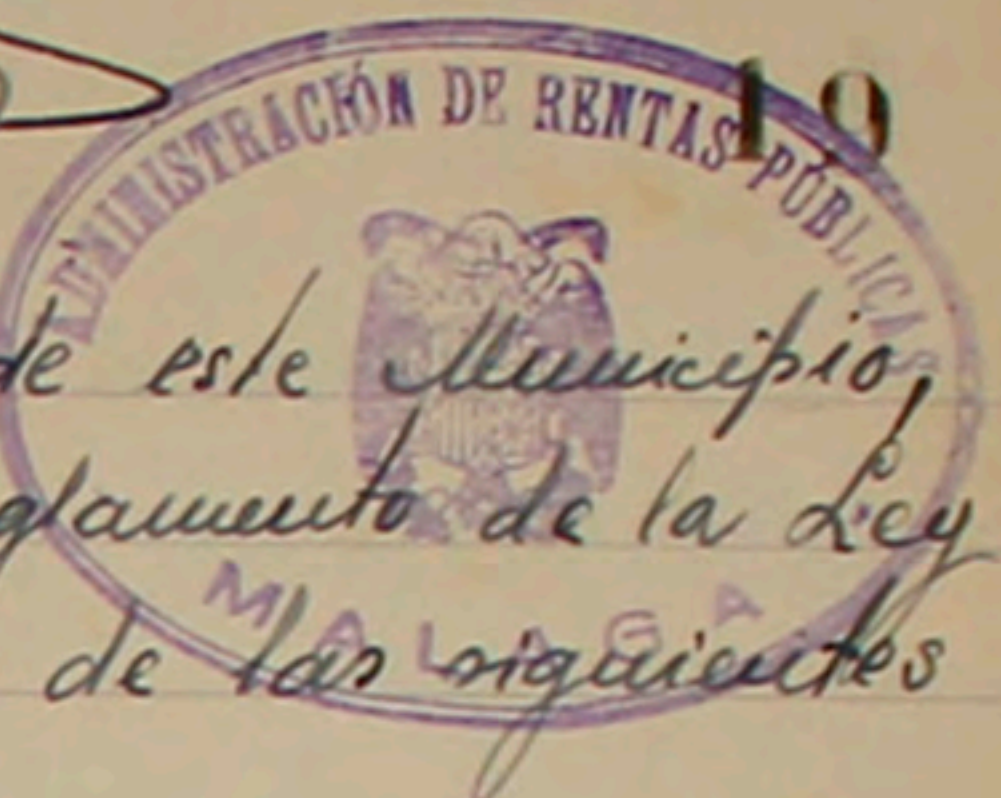 19
ADMINISTRACIÓN DE RENTAS PÚBLICAS
de este Municipio,
glamento de la Ley
MALAGA
de las siguientes